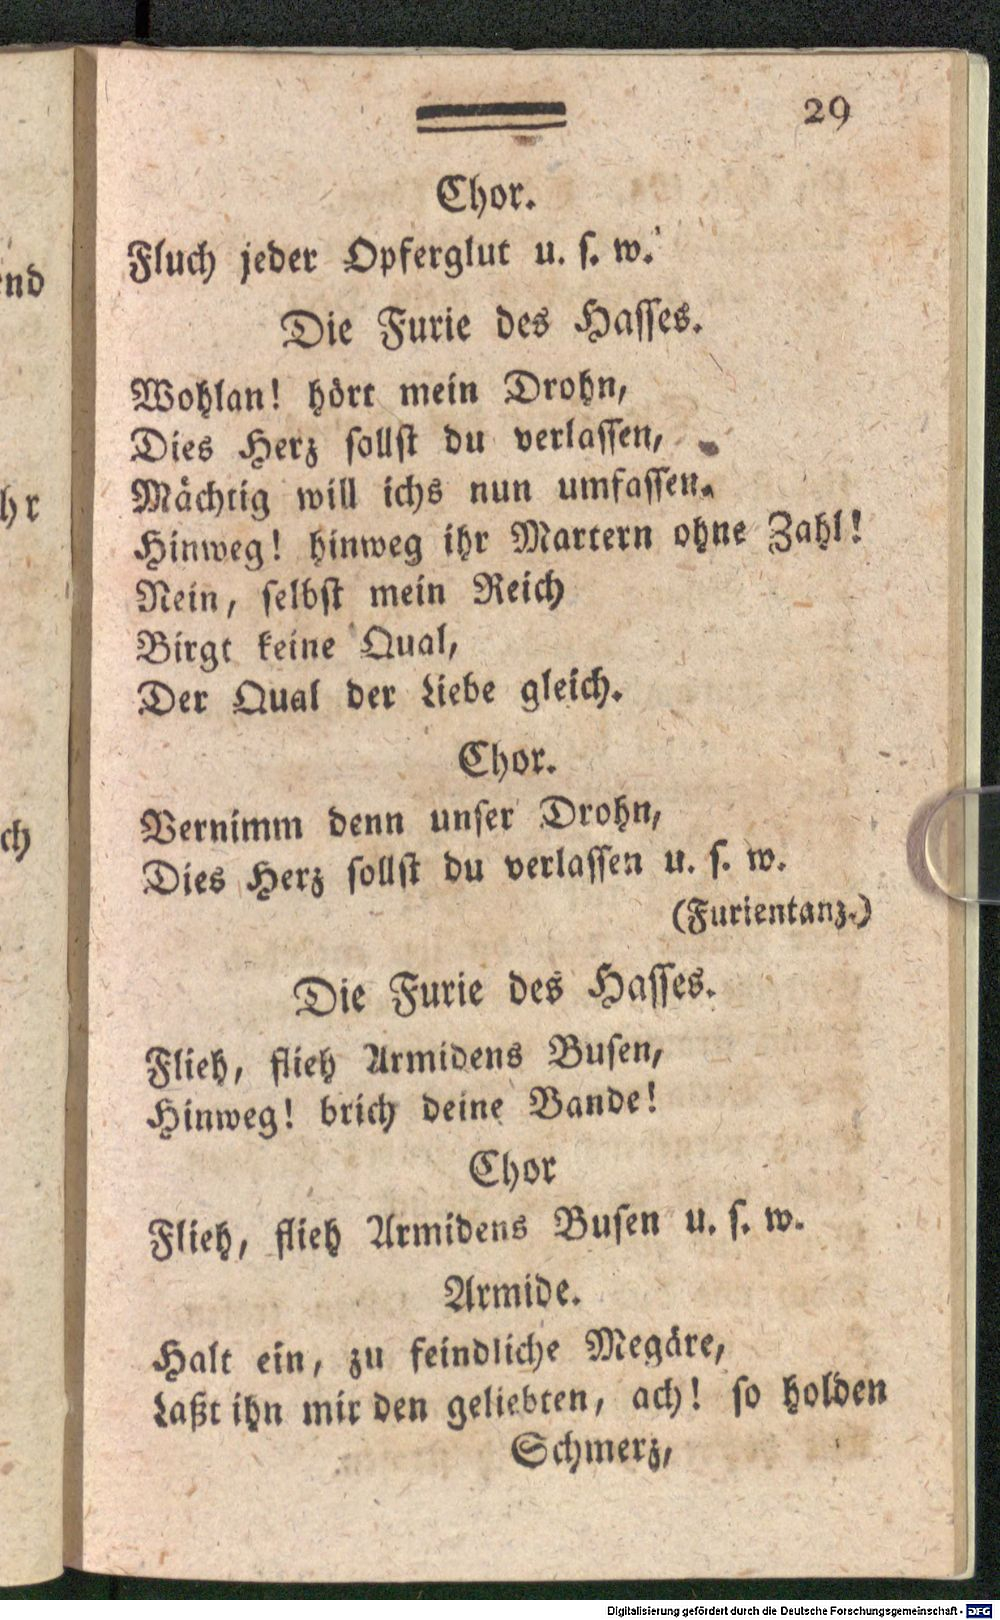 29
Chor.
Fluch jeder Opferglut u. ſ. w.
Die Furie des Haſſes.
Wohlan! hört mein Drohn,
Dies Herz ſollſt du verlaſſen,
Mächtig will ichs nun umfaſſen.
Hinweg! hinweg ihr Martern ohne Zahl!
Nein, ſelbſt mein Reich
Birgt keine Qual,
Der Qual der Liebe gleich.
Chor.
Vernimm denn unſer Drohn,
Dies Herz ſollſt du verlaſſen u. ſ. w.
(Furientanz.)
Die Furie des Haſſes.
Flieh, flieh Armidens Buſen,
Hinweg! brich deine Bande!
Chor
Flieh, flieh Armidens Buſen u. ſ. w.
Armide.
Halt ein, zu feindliche Megäre,
Laßt ihn mir den geliebten, ach! ſo holden
Schmerz,
Digitalisierung gefördert durch die Deutsche Forschungsgemeinschaft - DFG